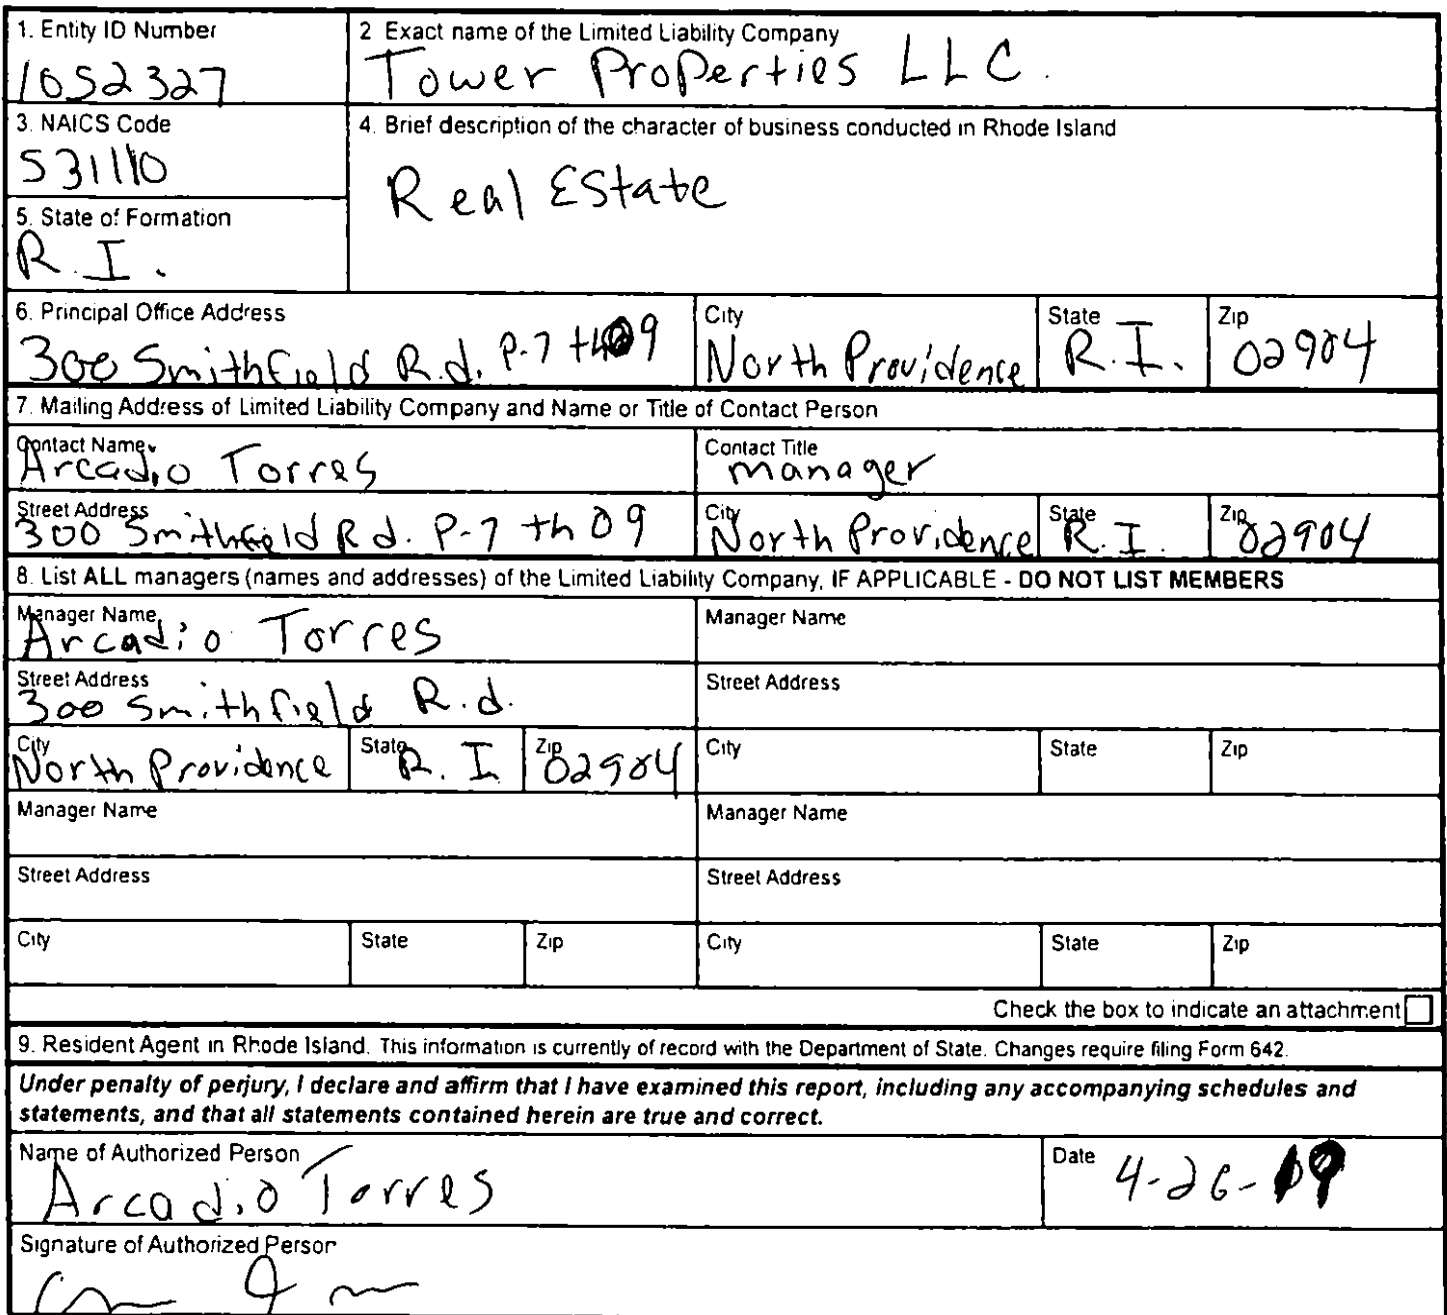 1. Entity ID Number
1052327
2 Exact name of the Limited Liability Company
Tower Properties LLC.
3. NAICS Code
531110
4. Brief description of the character of business conducted in Rhode Island
Real Estate
5. State of Formation
R.I.
6. Principal Office Address
300 Smithfield R.d. P-7 th09
City
North Providence
State
R.I.
Zip
02904
7. Mailing Address of Limited Liability Company and Name or Title of Contact Person
Contact Name
Arcadio Torres
Contact Title
manager
Street Address
300 Smithfield Rd. P-7 th 09
City
North Providence
State
R.I.
Zip
02904
8. List ALL managers (names and addresses) of the Limited Liability Company, IF APPLICABLE - DO NOT LIST MEMBERS
Manager Name
Arcadio Torres
Manager Name
Street Address
300 Smithfield R.d.
Street Address
City
North Providence
State
R.I
Zip
02904
City
State
Zip
Manager Name
Manager Name
Street Address
Street Address
City
State
Zip
City
State
Zip
Check the box to indicate an attachment
9. Resident Agent in Rhode Island. This information is currently of record with the Department of State. Changes require filing Form 642.
Under penalty of perjury, I declare and affirm that I have examined this report, including any accompanying schedules and
statements, and that all statements contained herein are true and correct.
Name of Authorized Person
Arcadio Torres
Date
4-26-19
Signature of Authorized Person